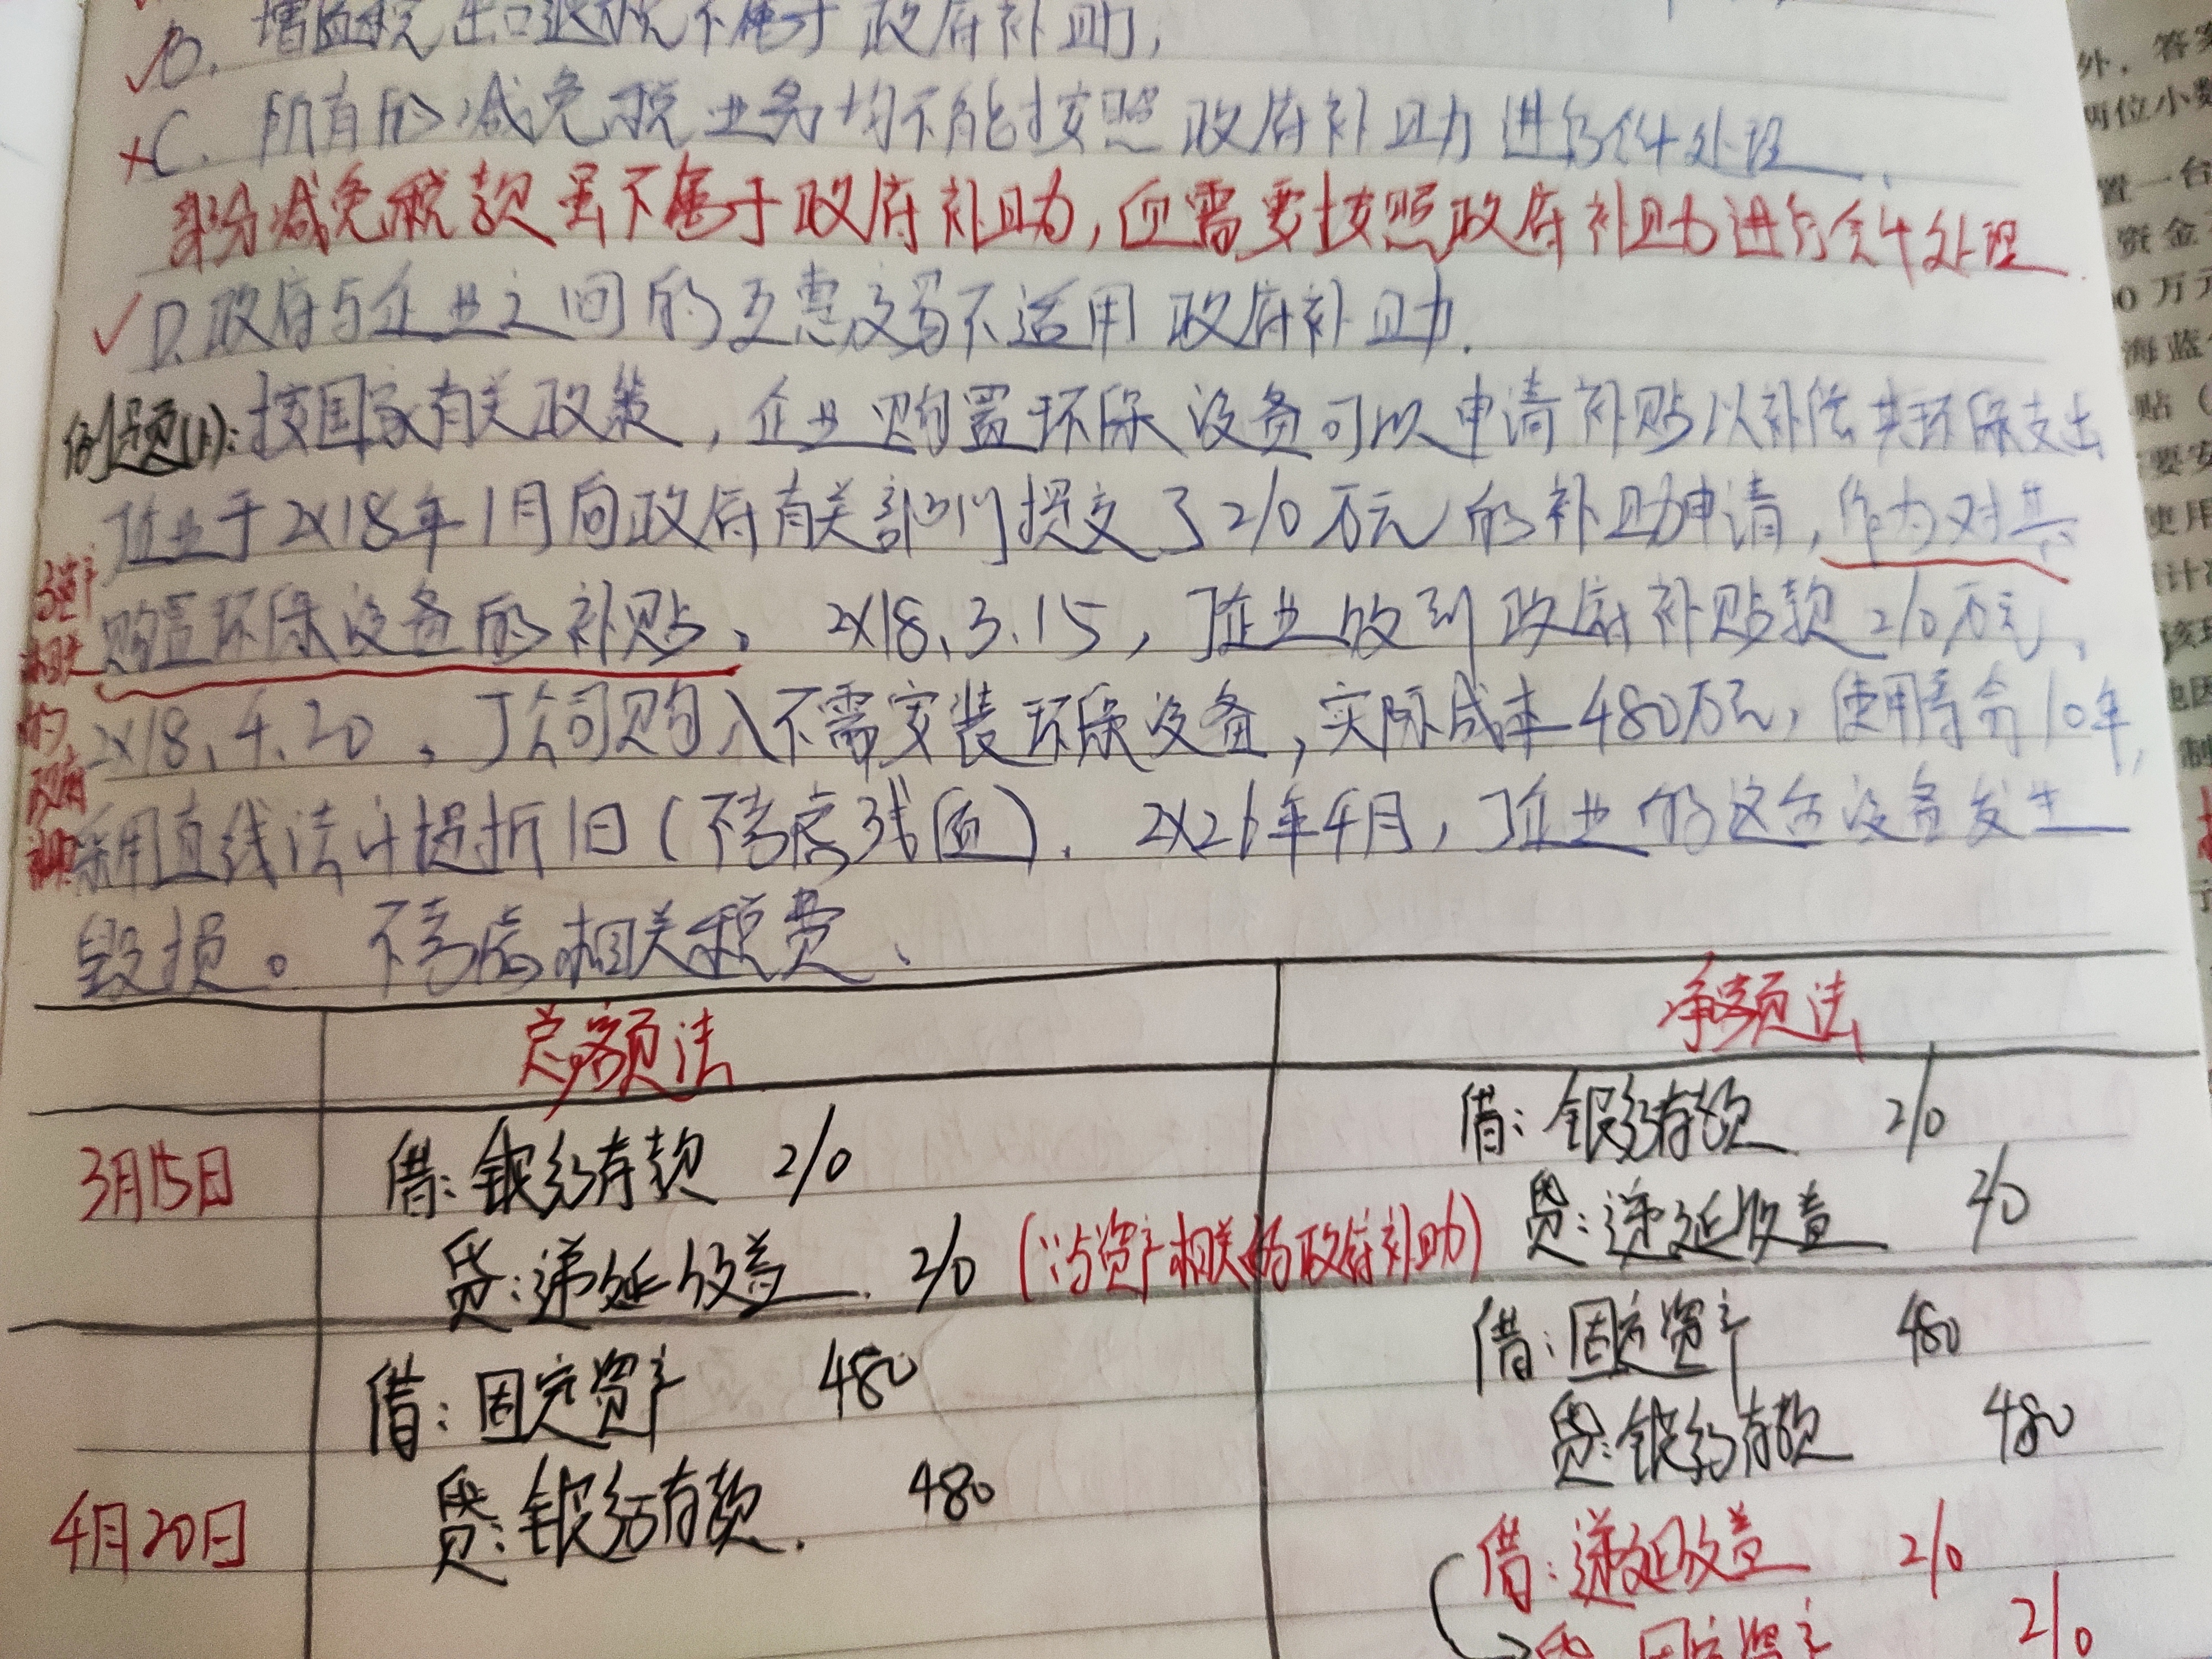 B. 增值税出口退税不属于政府补助.
× C. 阶直的减免税业务均不能按照政府补助进行会计处理
部分减免税款虽不属于政府补助,但需要按照政府补助进行会计处理
✓ D. 政府与企业之间的互惠交易不适用政府补助.
例题(1):按国家有关政策,企业购置环保设备可以申请补贴以补偿其环保支出
企业于2X18年1月向政府有关部门提交了210万元的补助申请,作为对其
购置环保设备的补贴,2X18.3.15,企业收到政府补贴款210万元,
与资产相关的
2X18.4.20,企业购入不需安装环保设备,实际成本480万元,使用寿命10年,
采用直线法计提折旧(不考虑残值).2X26年4月,企业的这台设备发生
毁损。不考虑相关税费、
总额法 净额法
3月15日 借:银行存款 210 借:银行存款 210
贷:递延收益 210 (与资产相关的政府补助) 贷:递延收益 210
4月20日 借:固定资产 480 借:固定资产 480
贷:银行存款 480 贷:银行存款 480
借:递延收益 210
贷:固定资产 210
外,答
两位小数
置一台
资金
00万元